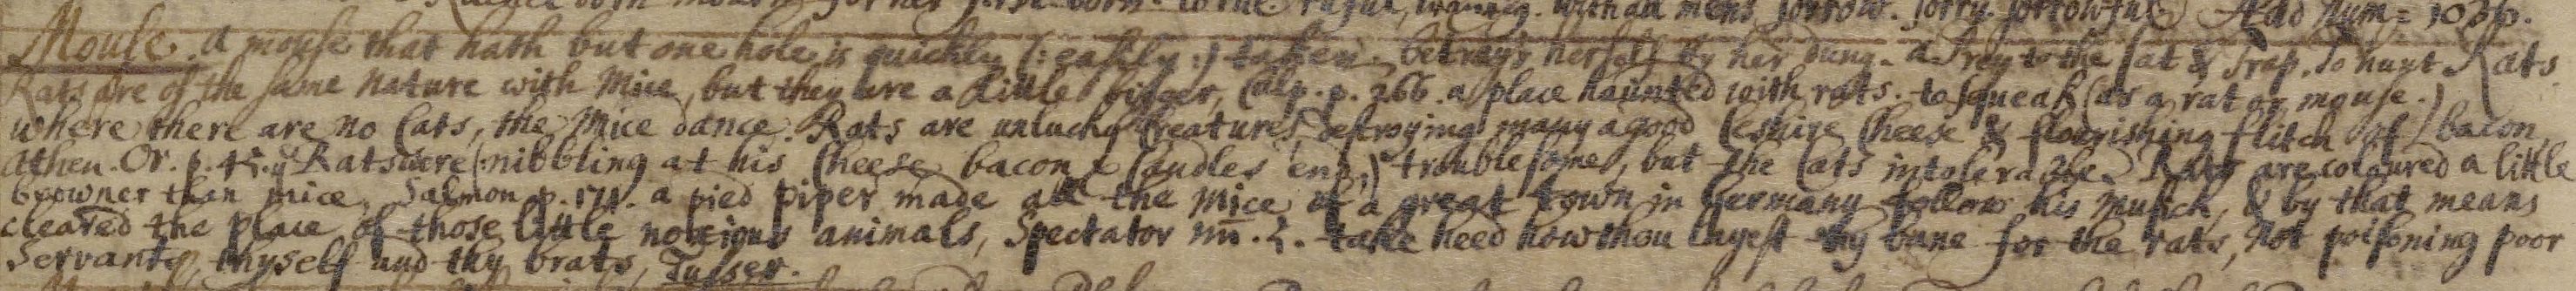 for her first born. with all mens sorrow. sorry. sorrowful Add Num= 1036.
Mouse. a mouse that hath but one hole is quickly (: easily :) taken. betrays herself by her dung. a Prey to the Cat & Trap. To hunt Rats.
Rats are of the same nature with Mice, but they are a little bigger, Calp. p. 266. a place haunted with rats. to squeak (as a rat or mouse.)
where there are no Cats, the Mice dance. Rats are unlucky Creatures destroying many a good Cheshire Cheese & flourishing flitch of bacon
Athen. Or. p. 45. ye Rats were (: nibbling at his Cheese bacon & Candles end :) troublesome, but the Cats intolerable. Rats are coloured a little
browner than mice, Salmon p. 171. a pied piper made all the Mice of a great town in Germany follow his Musick, & by that means
cleared the place of those little noxious animals, Spectator take heed how thou layest thy bane for the rats, not poisoning poor
Servants, thyself and thy brats, Tusser.